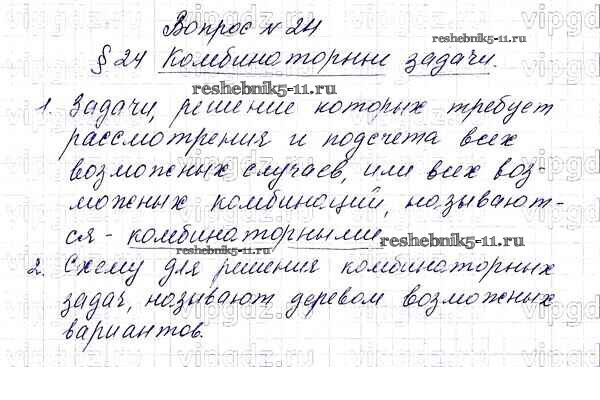 Вопрос №24
§ 24 Комбинаторные задачи.
1. Задачи, решение которых требует
рассмотрения и подсчета всех
возможных случаев, или всех воз-
можных комбинаций, называют-
ся - комбинаторными.
2. Схему для решения комбинаторных
задач, называют деревом возможных
вариантов.
reshebnik5-11.ru
reshebnik5-11.ru
reshebnik5-11.ru
reshebnik5-11.ru